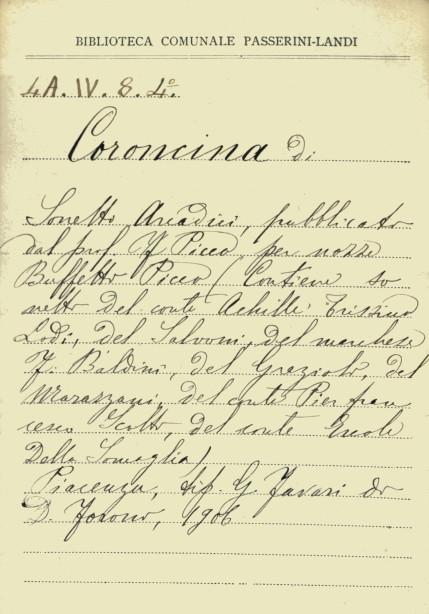 BIBLIOTECA COMUNALE PASSERINI-LANDI
4A.IV.8.4º.
Coroncina di
Sonetti Arcadici, pubblicato
dal prof. F. Picco, per nozze
Buffetto Picco (Contiene so
netto del conte Achille Trissino
Lodi, del Salvoni, del marchese
F. Baldini, del Graziolo, del
Marazzani, del conte Pier fran
cesco Scotto, del conte Ercole
Della Somaglia)
Piacenza, tip. G. Favari di
D. Foroni, 1906